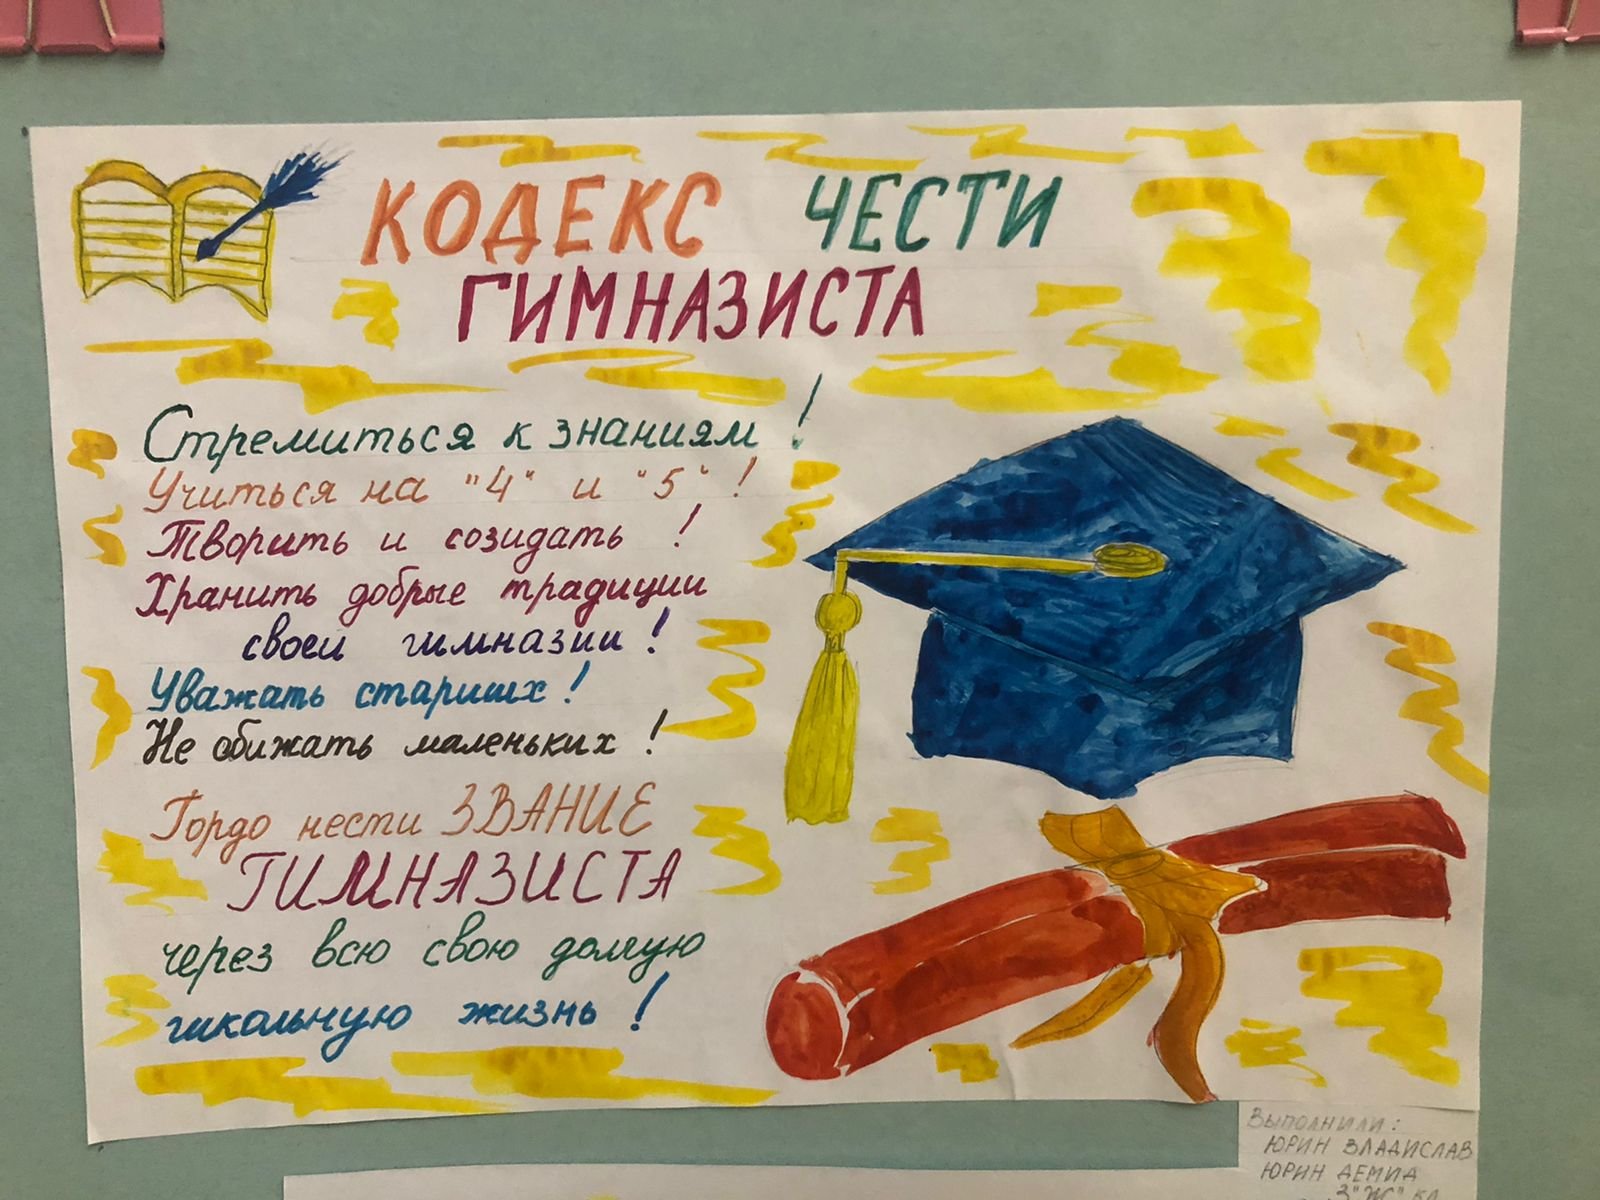 КОДЕКС ЧЕСТИ
ГИМНАЗИСТА
Стремиться к знаниям!
Учиться на "4" и "5"!
Творить и созидать!
Хранить добрые традиции
своей гимназии!
Уважать старших!
Не обижать маленьких!
Гордо нести ЗВАНИЕ
ГИМНАЗИСТА
через всю свою долгую
школьную жизнь!
ВЫПОЛНИЛИ:
ЮРИН ВЛАДИСЛАВ
ЮРИН ДЕМИД
3"Ж" КЛ